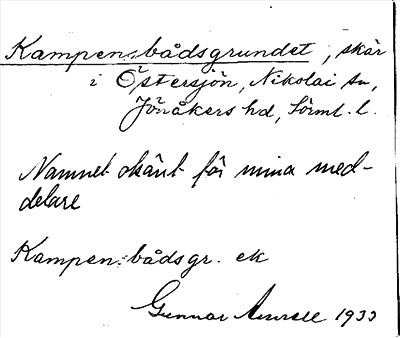 Kampensbådsgrundet, skär
i Östersjön, Nikolai sn,
Jönåkers hd, Sörml. l.
Namnet okänt för mina med-
delare
Kampensbådsgr. ek
Gunnar Aurell 1933